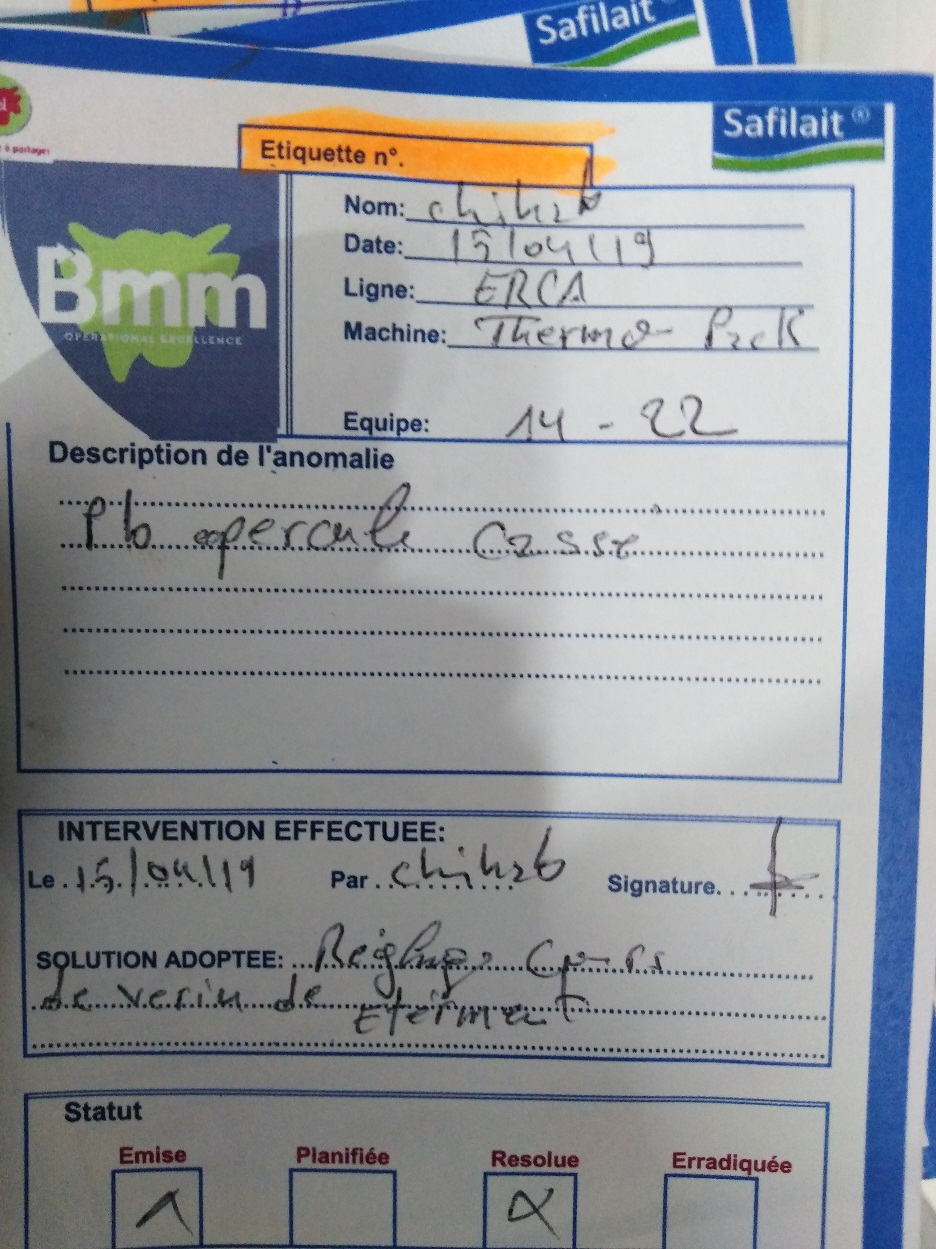 Safilait
el
e à partager
Etiquette n°.
Safilait ®
Bmm
OPERATIONAL EXCELLENCE
Nom: chihab
Date: 15/04/19
Ligne: ERCA
Machine: Thermo-Pack
Equipe: 14 - 22
Description de l'anomalie
Pb opercule Casse
INTERVENTION EFFECTUEE:
Le 15/04/19 Par chihab Signature
SOLUTION ADOPTEE: Réglage
de verin de
Statut
Emise Planifiée Resolue Erradiquée